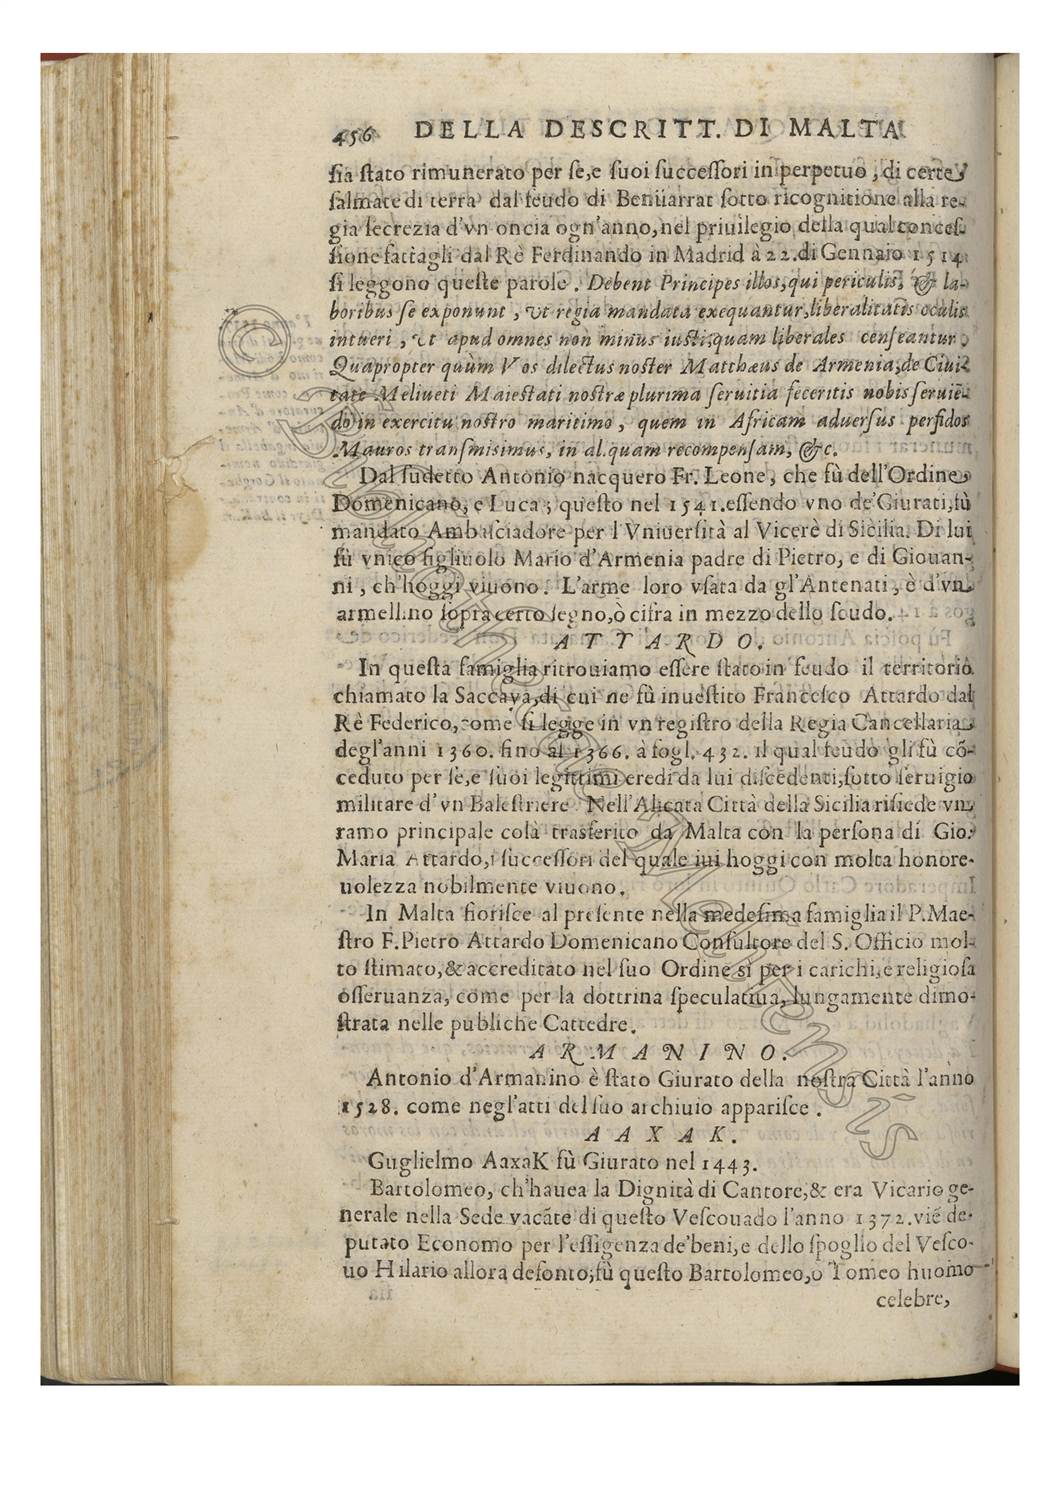 456 DELLA DESCRITT. DI MALTA
ſia ſtato rimunerato per ſe,e ſuoi ſucceſſori in perpetuo, di certe
ſalmate di terra dal feudo di Beniiarrat ſotto ricognitione alla re-
gia ſecrezia d'vn oncia ogn'anno,nel priuilegio della qual conceſ-
ſione fattagli dal Rè Ferdinando in Madrid à 22.di Gennaio 1514
ſi leggono queſte parole. Debent Principes illos,qui periculis, & la-
boribus ſe exponunt, vt regia mandata exequantur,liberalitatis oculis
intueri, vt apud omnes non minùs iuſti,quam liberales cenſeantur.
Quapropter quùm Vos dilectus noſter Matthæus de Armenia,de Ciui-
tate Meliueti Maieſtati noſtræ plurima ſeruitia feceritis nobis ſeruiē-
do in exercitu noſtro maritimo, quem in Africam aduerſus perfidos
Mauros tranſmisimus, in al.quam recompenſam, &c.
Dal ſudetto Antonio nacquero Fr. Leone, che fù dell'Ordine
Domenicano, e Luca; queſto nel 1541.eſſendo vno de'Giurati,fù
mandato Ambaſciadore per l'Vniuerſità al Vicerè di Sicilia. Di lui
fù vnico figliuolo Mario d'Armenia padre di Pietro, e di Giouan-
ni, ch'hoggi viuono. L'arme loro vſata da gl'Antenati, è d'vn
armellino ſopra certo ſegno,ò cifra in mezzo dello ſcudo.
ATTARDO.
In queſta famiglia ritrouiamo eſſere ſtato in feudo il territorio
chiamato la Saccaya,di cui ne fù inueſtito Franceſco Attardo dal
Rè Federico, come ſi legge in vn regiſtro della Regia Cancellaria
degl'anni 1360. fino al 1366. à fogl. 432. il qual feudo gli fù cō-
ceduto per ſe,e ſuoi legittimi eredi da lui diſcedenti,ſotto ſeruigio
militare d'vn Baleſtriere. Nell'Alicata Città della Sicilia riſiede vn
ramo principale colà trasferito da Malta con la perſona di Gio:
Maria Attardo,i ſucceſſori del quale iui hoggi con molta honore-
uolezza nobilmente viuono.
In Malta fioriſce al preſente nella medeſima famiglia il P.Mae-
ſtro F.Pietro Attardo Domenicano Conſultore del S. Officio mol-
to ſtimato,& accreditato nel ſuo Ordine sì per i carichi, e religioſa
oſſeruanza, come per la dottrina ſpeculatiua, lungamente dimo-
ſtrata nelle publiche Cattedre.
ARMANINO.
Antonio d'Armanino è ſtato Giurato della noſtra Città l'anno
1528. come negl'atti del ſuo archiuio appariſce.
AAXAK.
Guglielmo AaxaK fù Giurato nel 1443.
Bartolomeo, ch'hauea la Dignità di Cantore,& era Vicario ge-
nerale nella Sede vacāte di queſto Veſcouado l'anno 1372.viē de-
putato Economo per l'eſſigenza de'beni,e dello ſpoglio del Veſco-
uo Hilario allora defonto;fù queſto Bartolomeo,o Tomeo huomo
celebre,